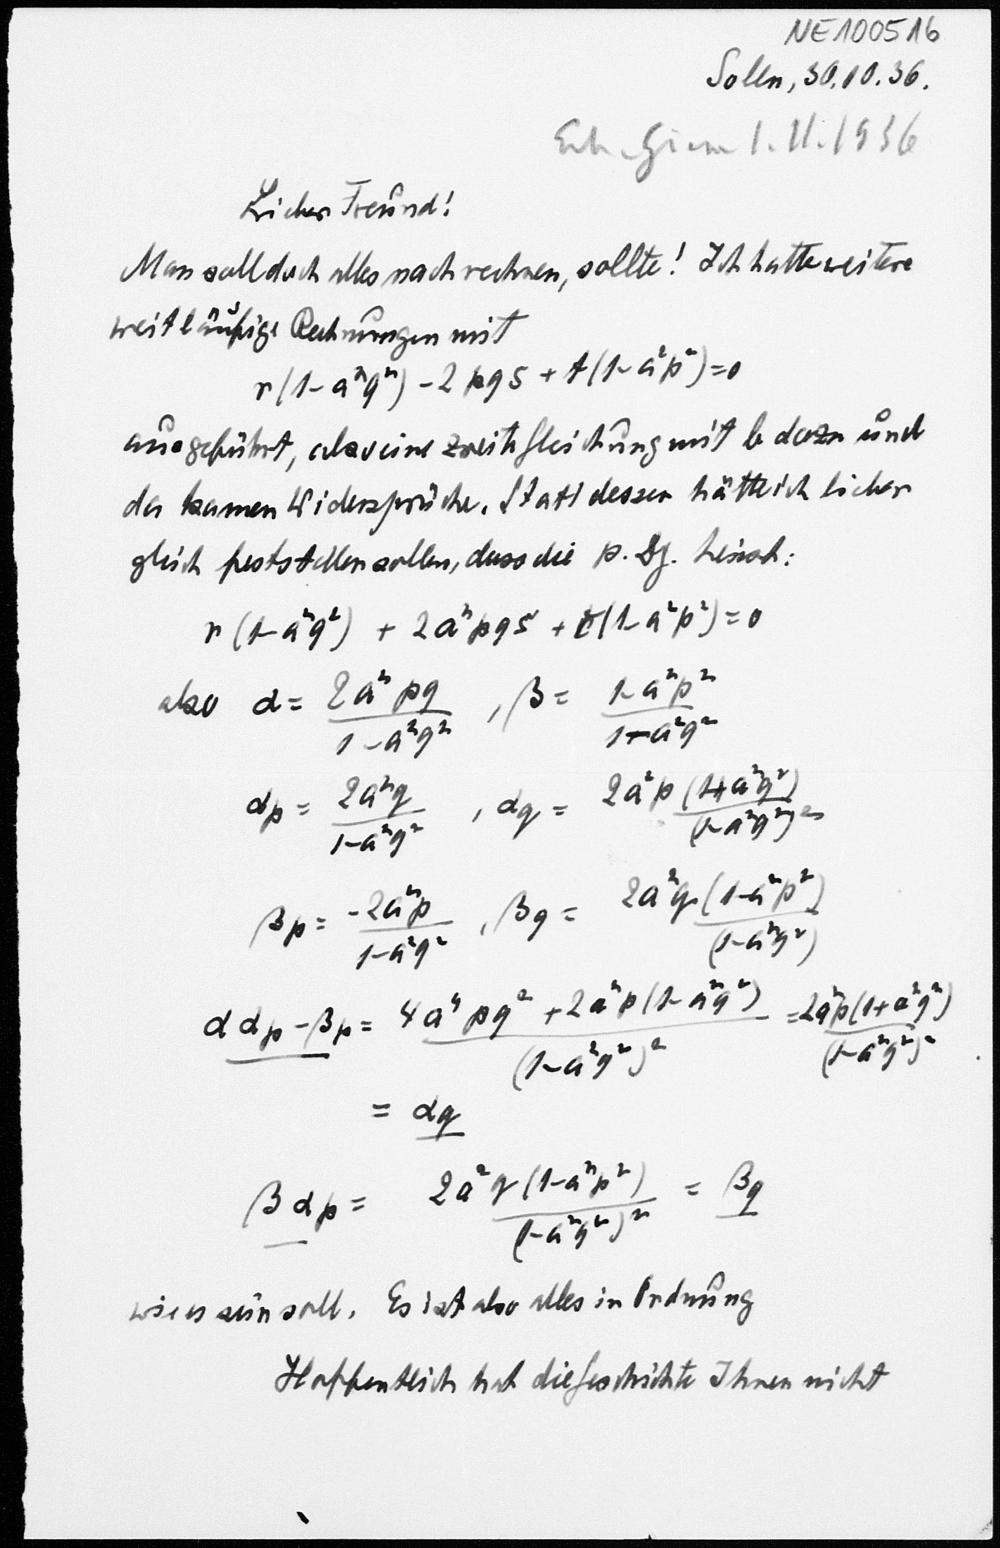 NE100516
Solln, 30.10.36.
1.11.1936
Lieber Freund!
Man soll doch alles nachrechnen, sollte! Ich hatte weitere
weitläufige Rechnungen mit
r(1-a²q²) - 2pqs + t(1-a²p²)=0
ausgeführt, also eine zweite Gleichung mit b dazu und
da kamen Widersprüche. Statt dessen hätte ich lieber
gleich feststellen sollen, dass die p. Dg. heisst:
r(1-a²q²) + 2a²pqs + t(1-a²p²)=0
also α = 2a²pq / (1-a²q²), β = (1-a²p²) / (1-a²q²)
αp = 2a²q / (1-a²q²), αq = 2a²p(1+a²q²) / (1-a²q²)²
βp = -2a²p / (1-a²q²), βq = 2a²q(1-a²p²) / (1-a²q²)
ααp - βp = (4a⁴pq² + 2a²p(1-a²q²)) / (1-a²q²)² = 2a²p(1+a²q²) / (1-a²q²)²
= αq
βαp = 2a²q(1-a²p²) / (1-a²q²)² = βq
wie es sein soll. Es ist also alles in Ordnung
Hoffentlich hat die Geschichte Ihnen nicht